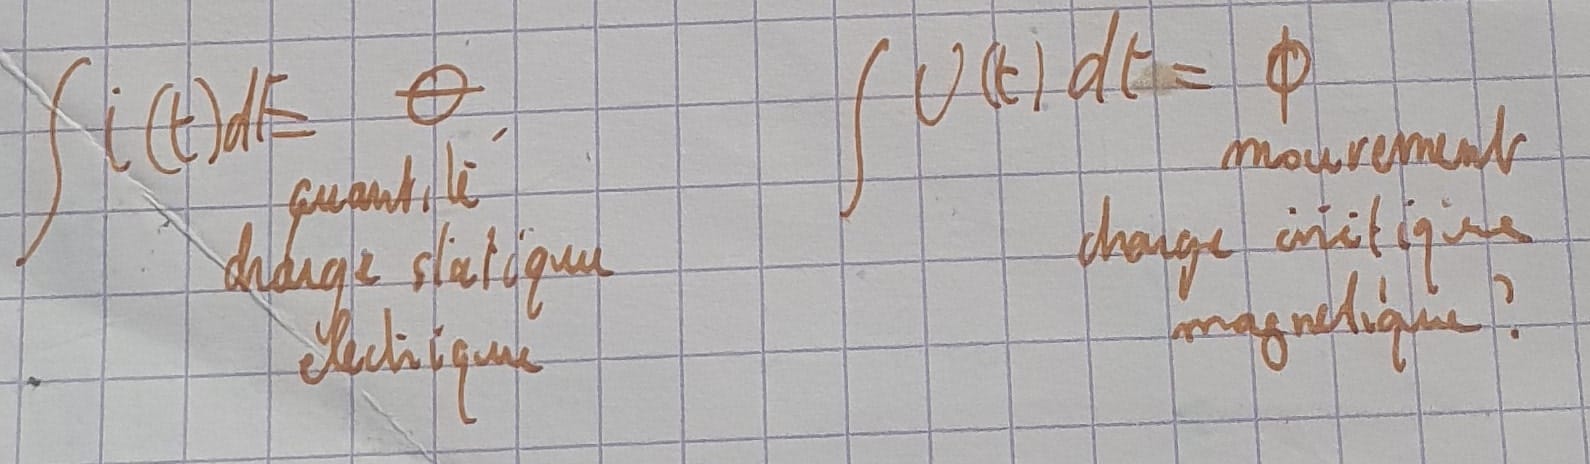 ∫ i(t)dt = θ
quantité
charge statique
électrique
∫ U(t) dt = ϕ
mouvement
charge cinétique
magnetique ?